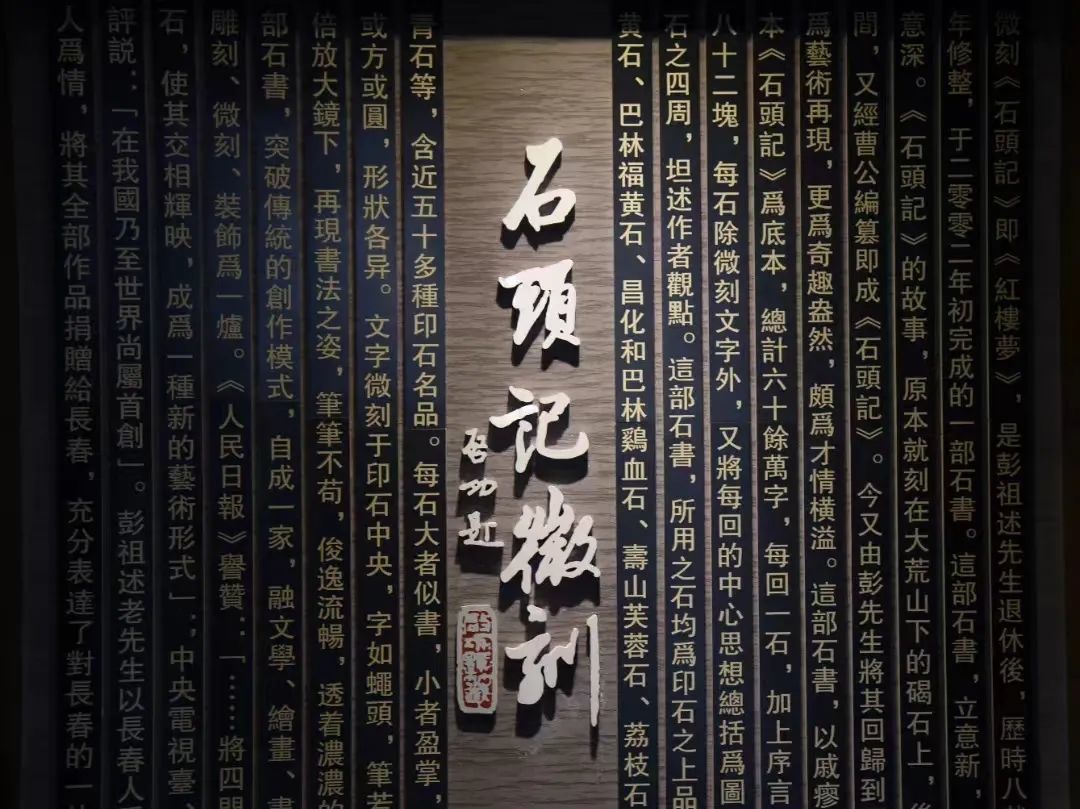 微刻《石頭記》即《紅樓夢》，是彭祖述先生退休後，歷時八
年修整，于二零零二年初完成的一部石書。這部石書，立意新，
意深。《石頭記》的故事，原本就刻在大荒山下的碣石上，
間，又經曹公編篡即成《石頭記》。今又由彭先生將其回歸到
爲藝術再現，更爲奇趣盎然，頗爲才情橫溢。這部石書，以戚蓼
本《石頭記》爲底本，總計六十餘萬字，每回一石，加上序言
八十二塊，每石除微刻文字外，又將每回的中心思想總括爲圖
石之四周，坦述作者觀點。這部石書，所用之石均爲印石之上品
黄石、巴林福黄石、昌化和巴林鷄血石、壽山芙蓉石、荔枝石
石頭記微刻
啓功題
青石等，含近五十多種印石名品。每石大者似書，小者盈掌，
或方或圓，形狀各异。文字微刻于印石中央，字如蠅頭，筆若
倍放大鏡下，再現書法之姿，筆筆不苟，俊逸流暢，透着濃濃的
部石書，突破傳統的創作模式，自成一家，融文學、繪畫、書
雕刻、微刻、裝飾爲一爐。《人民日報》譽贊：「……將四門
石，使其交相輝映，成爲一種新的藝術形式」；中央電視臺、
評説：「在我國乃至世界尚屬首創」。彭祖述老先生以長春人
人爲情，將其全部作品捐贈給長春，充分表達了對長春的一